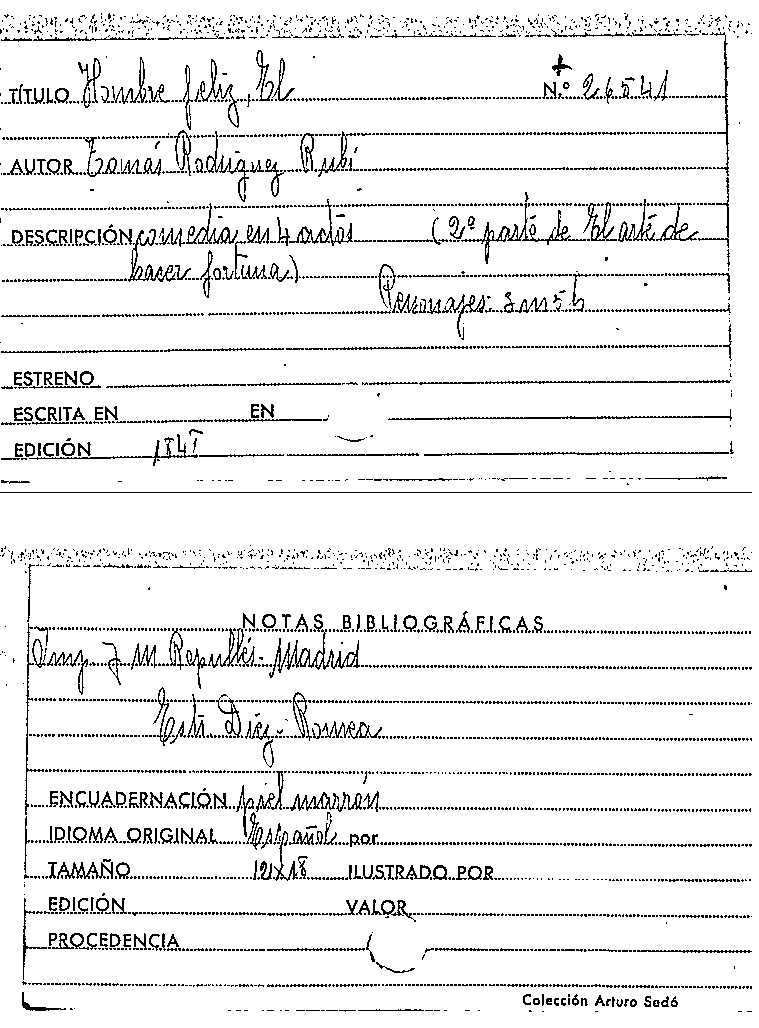 TÍTULO Hombre feliz, El N.º 26541
AUTOR Tomás Rodriguez Rubí
DESCRIPCIÓN comedia en 4 actos (2ª parte de El arte de
hacer fortuna)
Personajes. 8 m 5 h
ESTRENO
ESCRITA EN EN
EDICIÓN 1848
NOTAS BIBLIOGRÁFICAS
Imp. J M Repullés - Madrid
Estr Diez - Romea
ENCUADERNACIÓN piel marrón
IDIOMA ORIGINAL Español por
TAMAÑO 12x18 ILUSTRADO POR
EDICIÓN VALOR
PROCEDENCIA
Colección Arturo Sedó